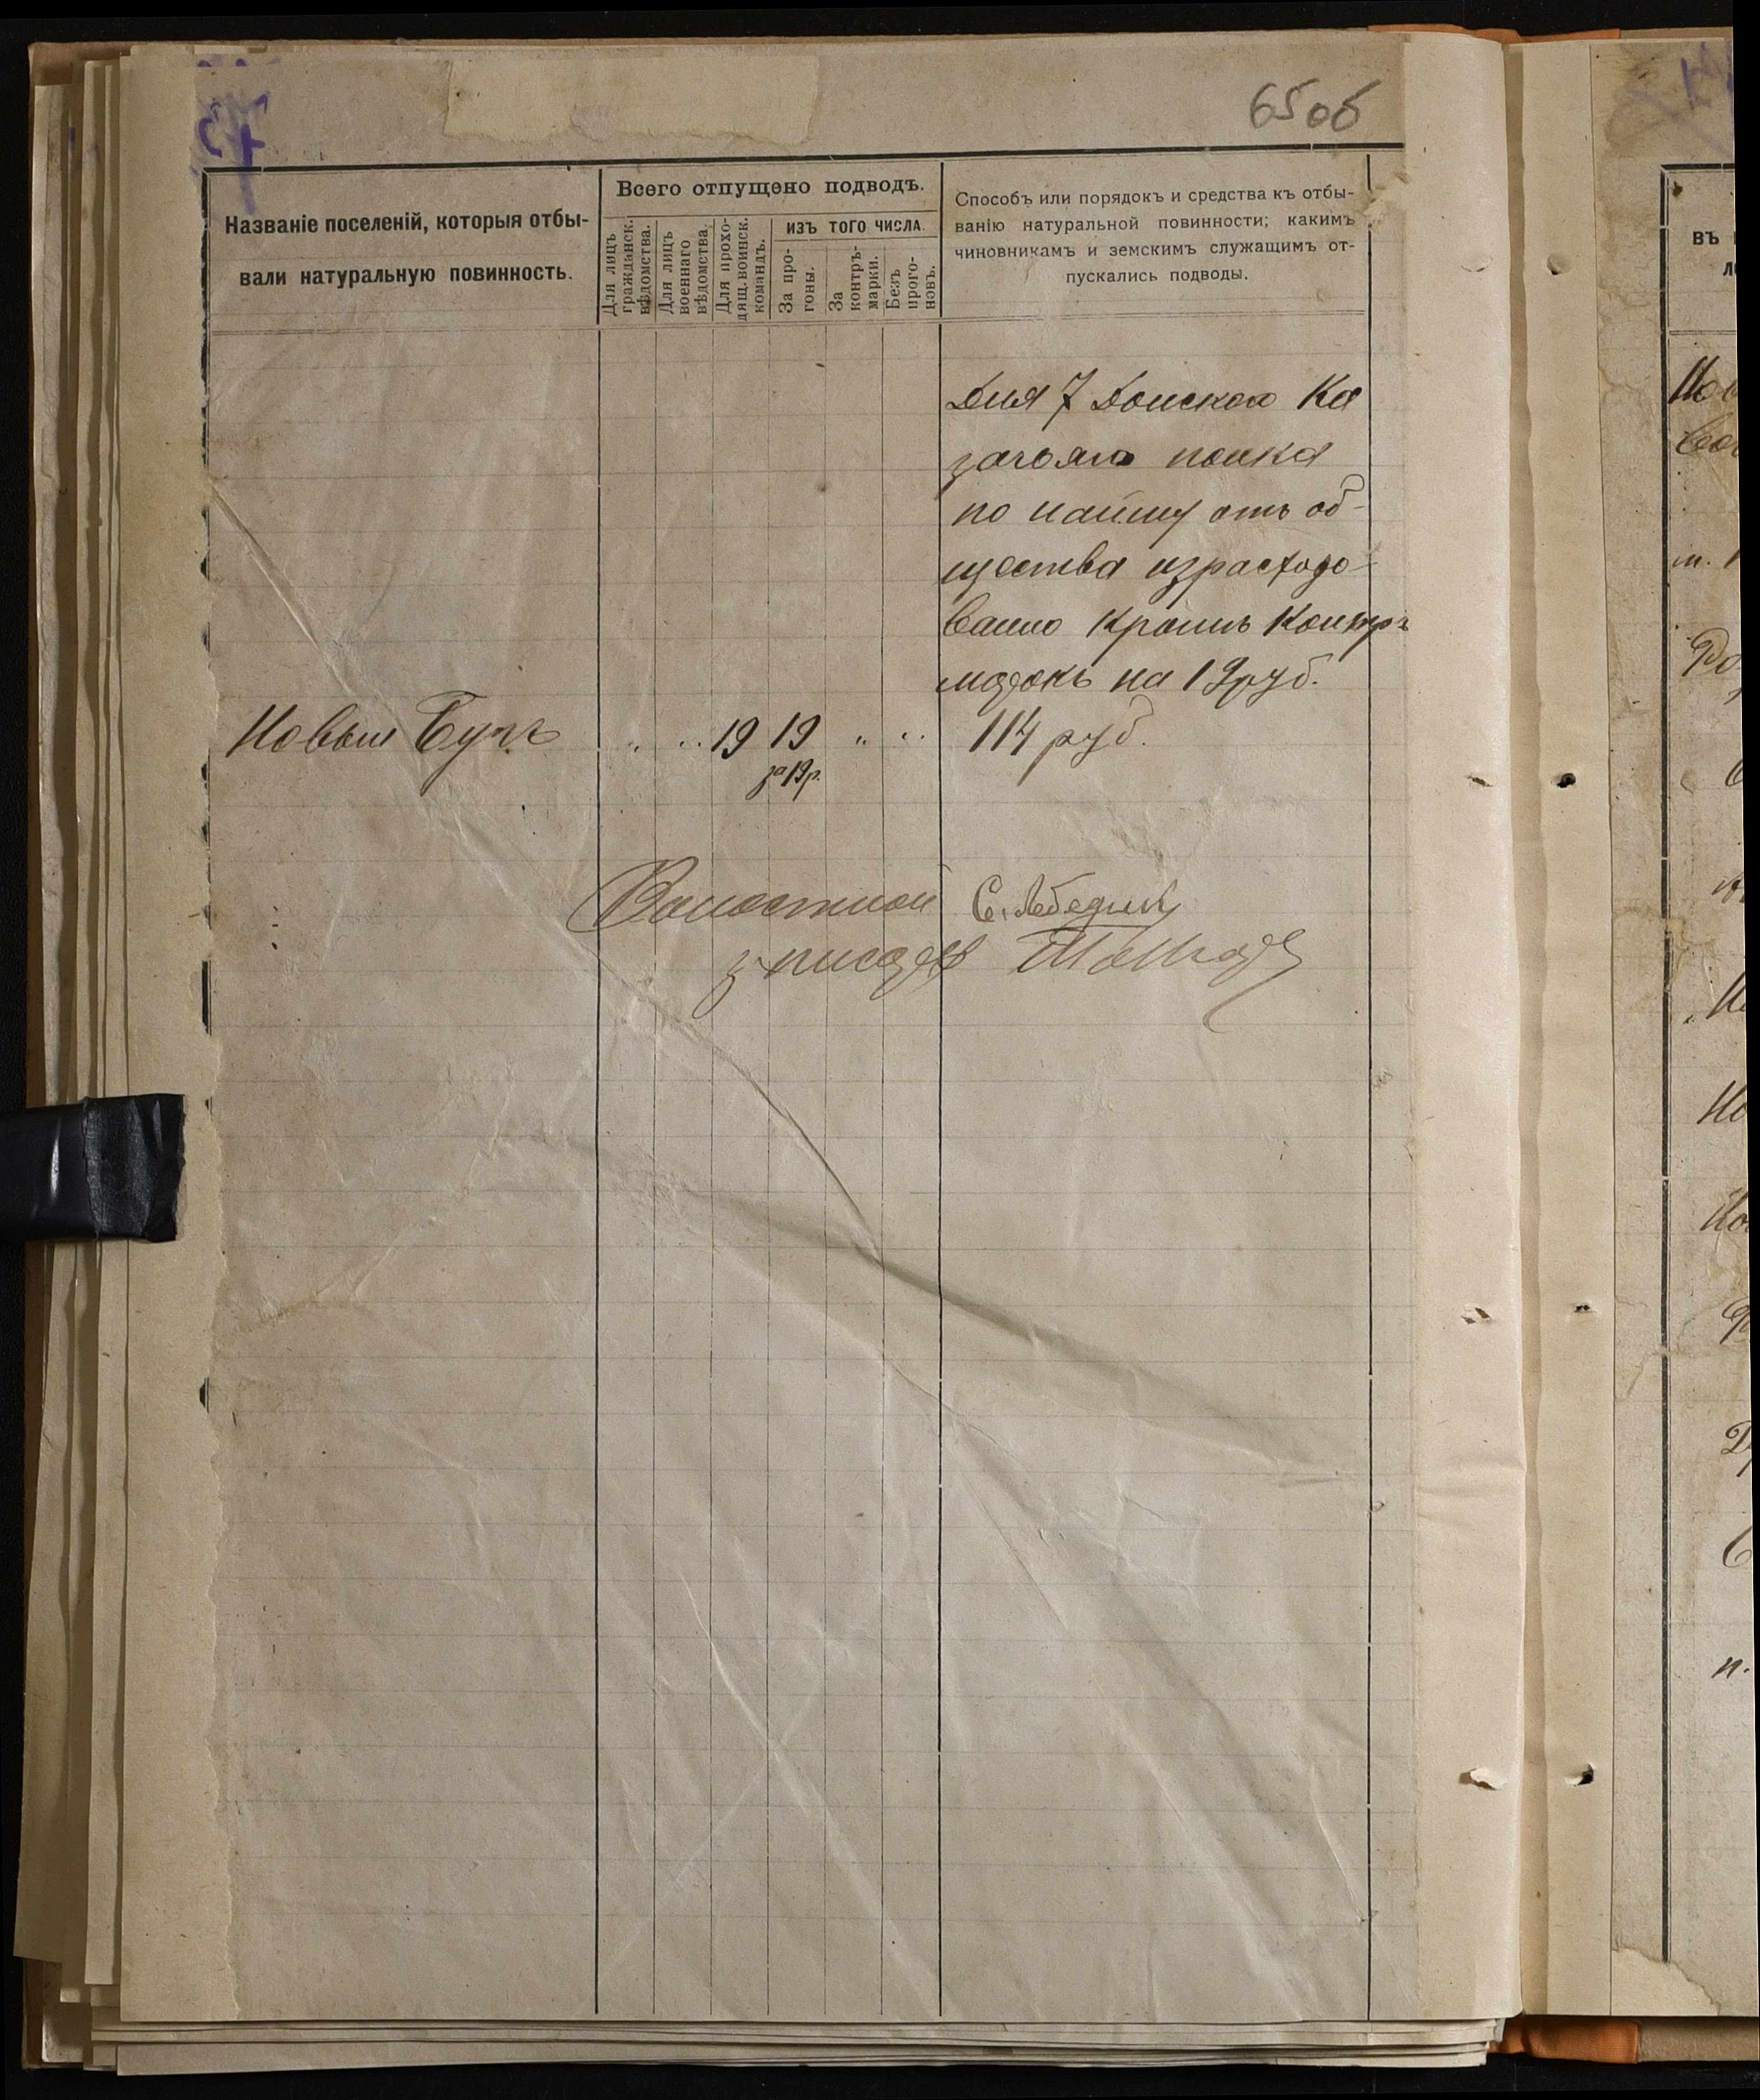 65об
Всего отпущено подводъ.
Названіе поселеній, которыя отбы-
вали натуральную повинность.
Для лицъ
гражданск.
вѣдомства.
Для лицъ
военнаго
вѣдомства.
Для прохо-
дящ. воинск.
командъ.
изъ того числа.
За про-
гоны.
За
контръ-
марки.
Безъ
прого-
новъ.
Способъ или порядокъ и средства къ отбы-
ванію натуральной повинности; какимъ
чиновникамъ и земскимъ служащимъ от-
пускались подводы.
Для 7 Донского Ка
зачьяго полка
по найму отъ об-
щества израсходо-
вано кромѣ контръ
марокъ на 19 руб.
Новый Бугъ " " 19 19 " " 114 руб.
за 19 р.
Волостной
въ